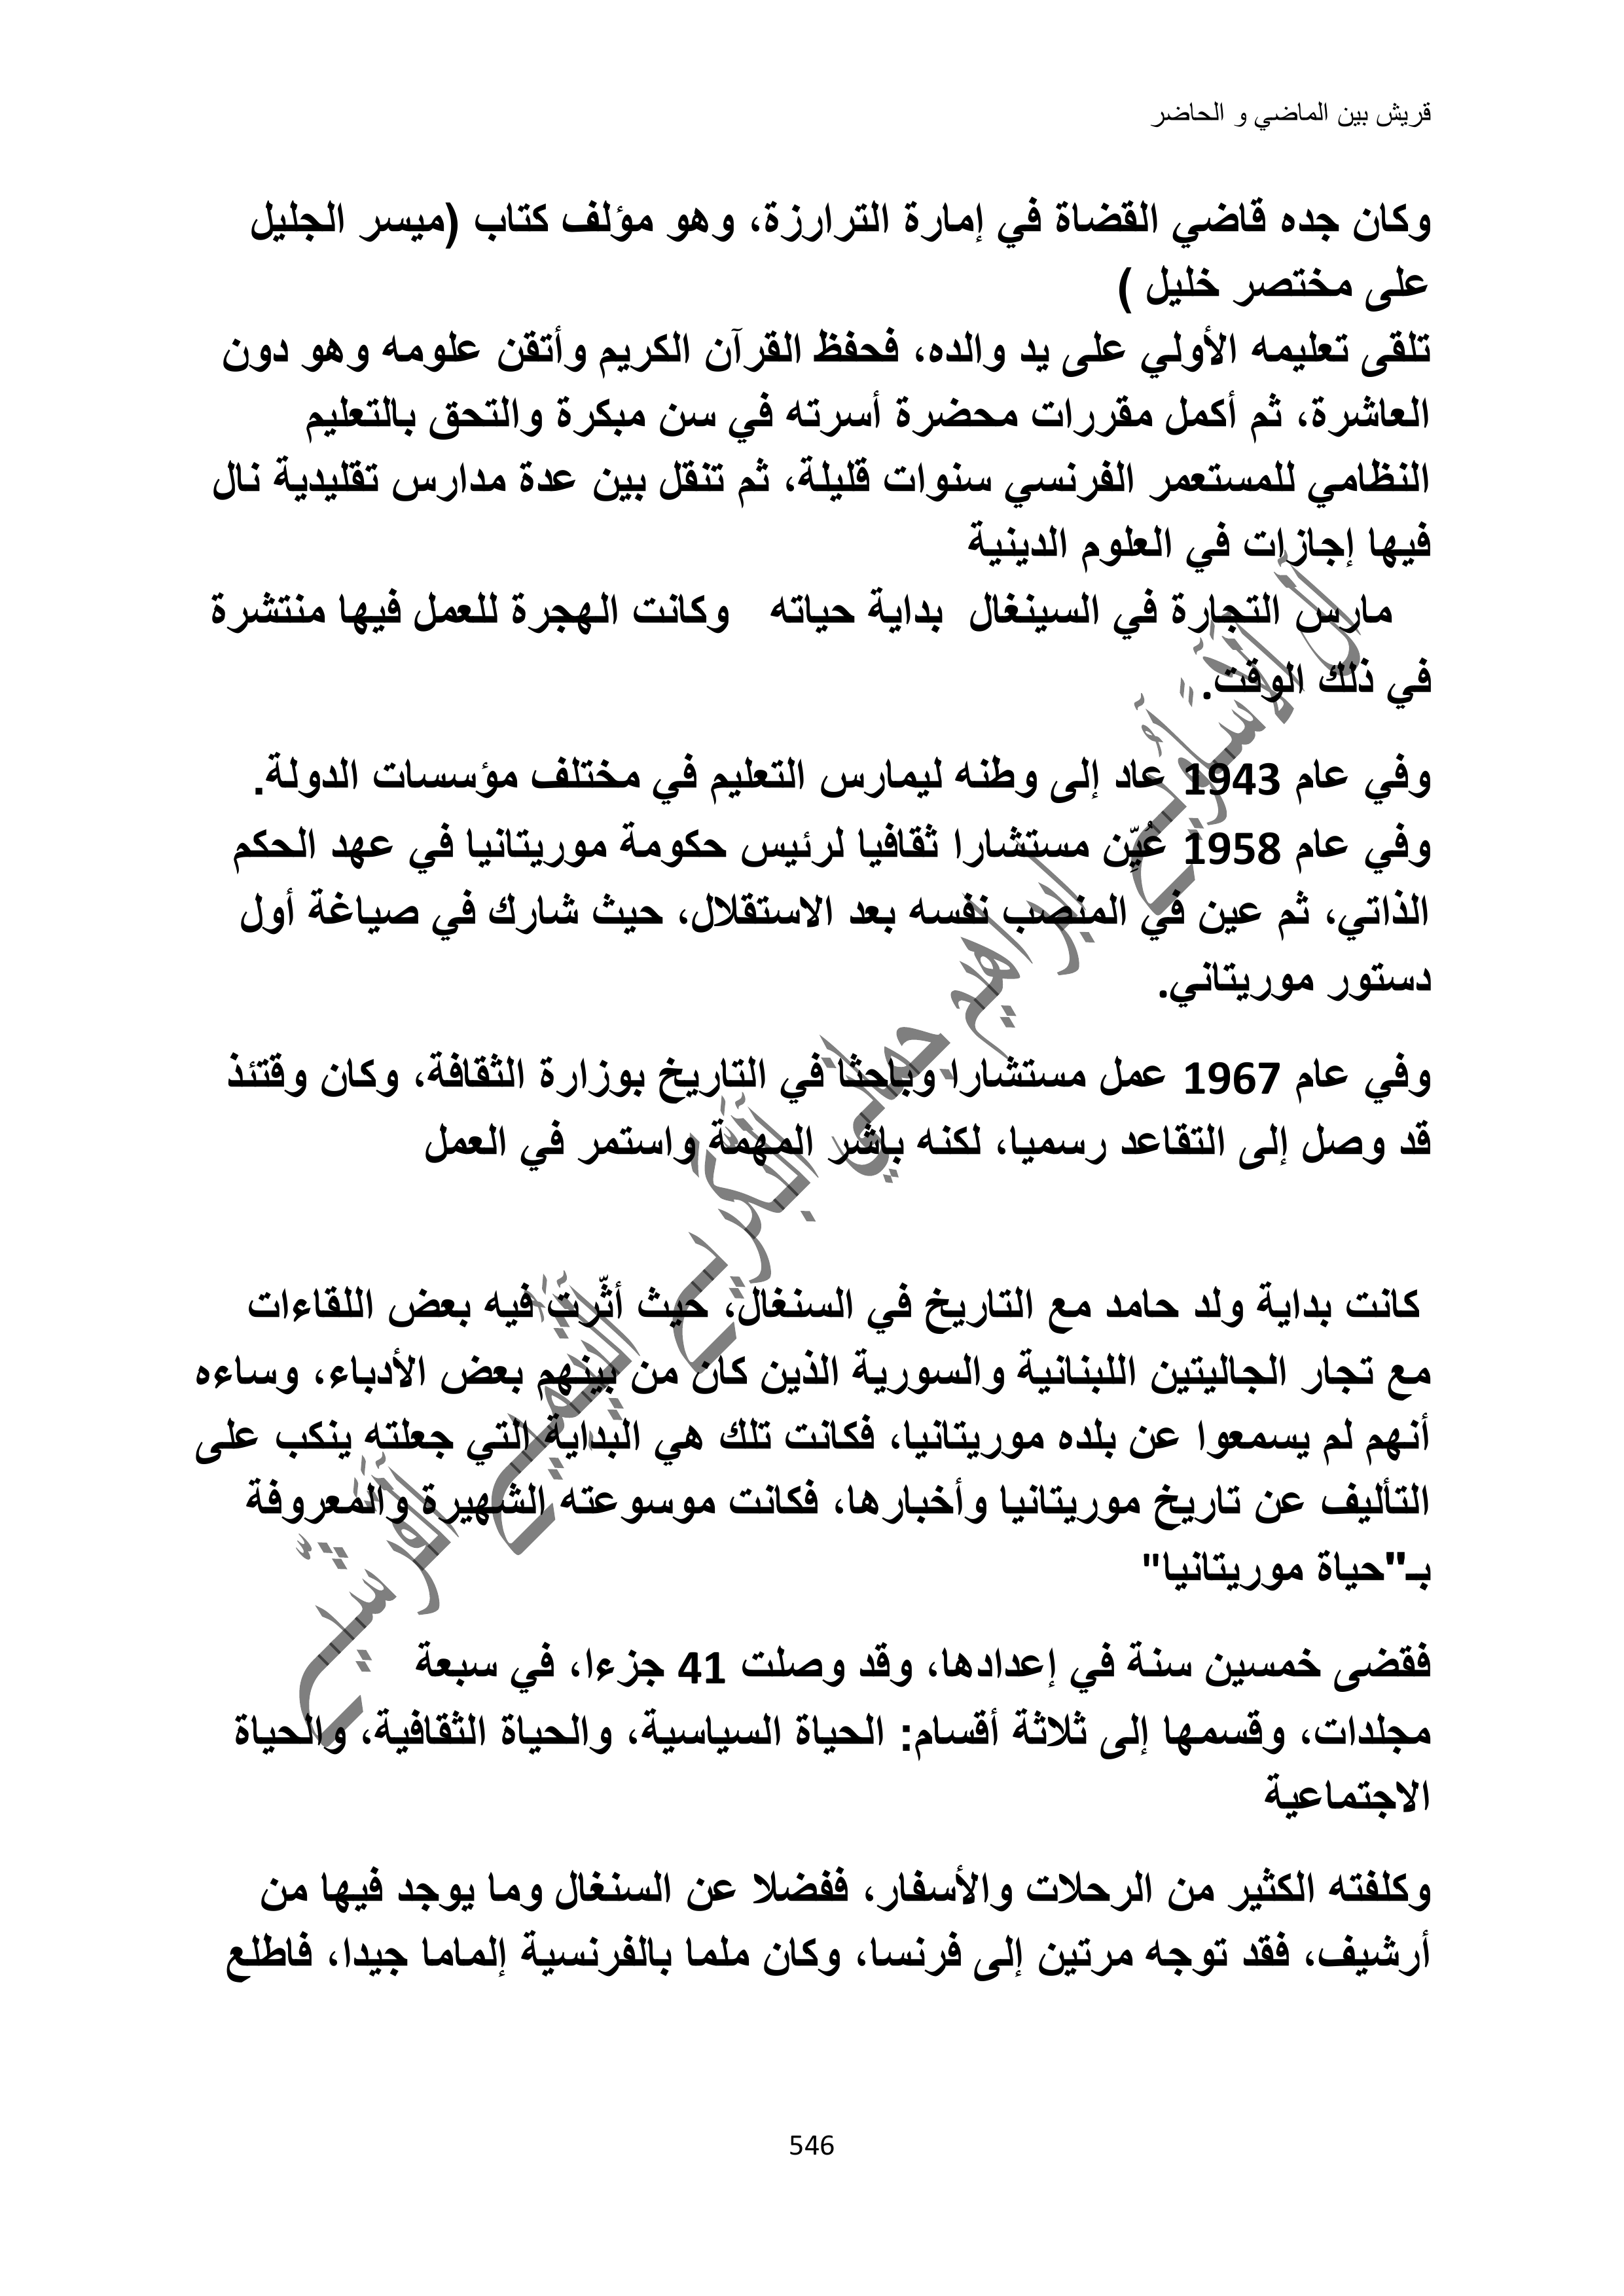 قريش بين الماضي و الحاضر
وكان جده قاضي القضاة في إمارة الترارزة، وهو مؤلف كتاب (ميسر الجليل
على مختصر خليل )
تلقى تعليمه الأولي على يد والده، فحفظ القرآن الكريم وأتقن علومه وهو دون
العاشرة، ثم أكمل مقررات محضرة أسرته في سن مبكرة والتحق بالتعليم
النظامي للمستعمر الفرنسي سنوات قليلة، ثم تنقل بين عدة مدارس تقليدية نال
فيها إجازات في العلوم الدينية
مارس التجارة في السينغال بداية حياته وكانت الهجرة للعمل فيها منتشرة
في ذلك الوقت.
وفي عام 1943 عاد إلى وطنه ليمارس التعليم في مختلف مؤسسات الدولة.
وفي عام 1958 عُيِّن مستشارا ثقافيا لرئيس حكومة موريتانيا في عهد الحكم
الذاتي، ثم عين في المنصب نفسه بعد الاستقلال، حيث شارك في صياغة أول
دستور موريتاني.
وفي عام 1967 عمل مستشارا وباحثا في التاريخ بوزارة الثقافة، وكان وقتئذ
قد وصل إلى التقاعد رسميا، لكنه باشر المهمة واستمر في العمل
كانت بداية ولد حامد مع التاريخ في السنغال، حيث أثّرت فيه بعض اللقاءات
مع تجار الجاليتين اللبنانية والسورية الذين كان من بينهم بعض الأدباء، وساءه
أنهم لم يسمعوا عن بلده موريتانيا، فكانت تلك هي البداية التي جعلته ينكب على
التأليف عن تاريخ موريتانيا وأخبارها، فكانت موسوعته الشهيرة والمعروفة
بـ"حياة موريتانيا"
فقضى خمسين سنة في إعدادها، وقد وصلت 41 جزءا، في سبعة
مجلدات، وقسمها إلى ثلاثة أقسام: الحياة السياسية، والحياة الثقافية، والحياة
الاجتماعية
وكلفته الكثير من الرحلات والأسفار، ففضلا عن السنغال وما يوجد فيها من
أرشيف، فقد توجه مرتين إلى فرنسا، وكان ملما بالفرنسية إلماما جيدا، فاطلع
546